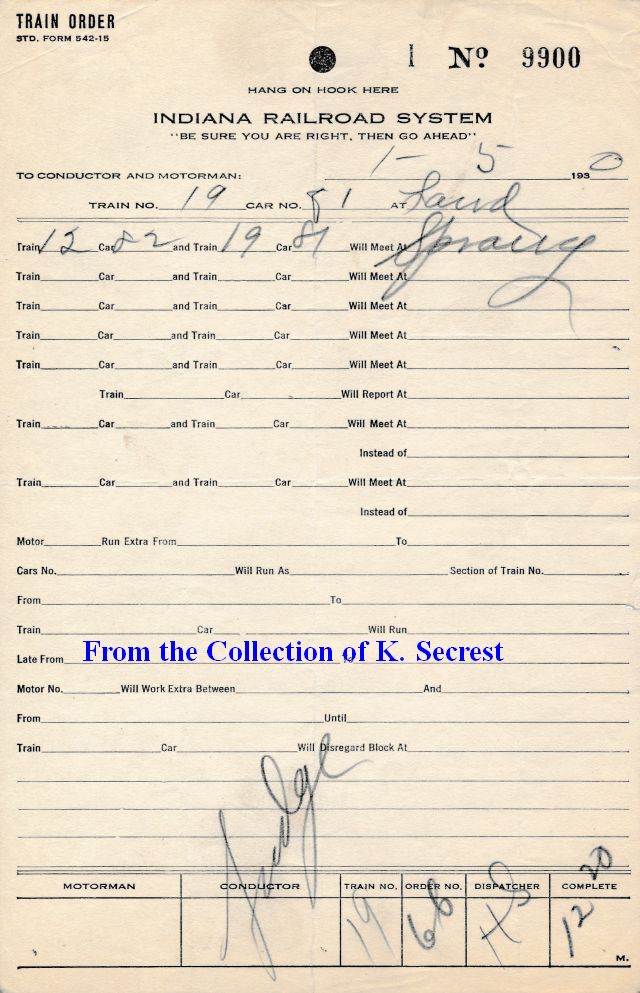 TRAIN ORDER
STD. FORM 542-15
1 Nº 9900
HANG ON HOOK HERE
INDIANA RAILROAD SYSTEM
"BE SURE YOU ARE RIGHT, THEN GO AHEAD"
TO CONDUCTOR AND MOTORMAN: 1-5 1930
TRAIN NO. 19 CAR NO. 81 AT
Train 12 Car 82 and Train 19 Car 81 Will Meet At
Train Car and Train Car Will Meet At
Train Car and Train Car Will Meet At
Train Car and Train Car Will Meet At
Train Car and Train Car Will Meet At
Train Car Will Report At
Train Car and Train Car Will Meet At
Instead of
Train Car and Train Car Will Meet At
Instead of
Motor Run Extra From To
Cars No. Will Run As Section of Train No.
From To
Train Car Will Run
Late From From the Collection of K. Secrest
Motor No. Will Work Extra Between And
From Until
Train Car Will Disregard Block At
MOTORMAN CONDUCTOR TRAIN NO. ORDER NO. DISPATCHER COMPLETE
Judge 19 66 HS 12 20 M.